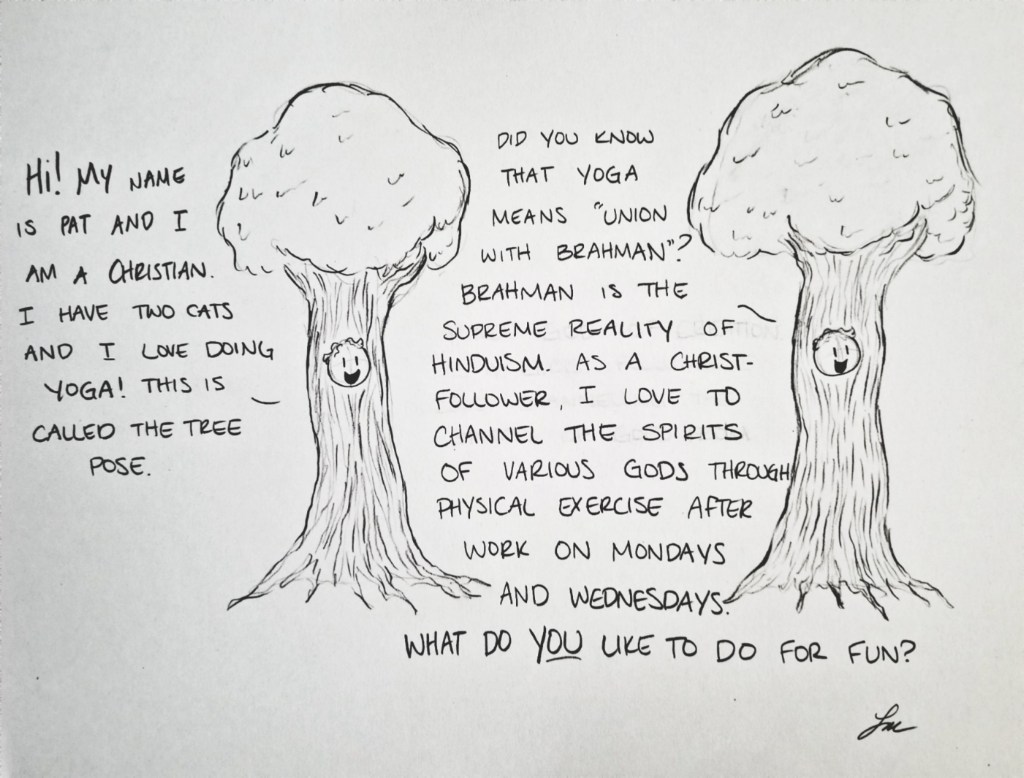 Hi! MY NAME
IS PAT AND I
AM A CHRISTIAN.
I HAVE TWO CATS
AND I LOVE DOING
YOGA! THIS IS
CALLED THE TREE
POSE.
DID YOU KNOW
THAT YOGA
MEANS "UNION
WITH BRAHMAN"?
BRAHMAN IS THE
SUPREME REALITY OF
HINDUISM. AS A CHRIST-
FOLLOWER, I LOVE TO
CHANNEL THE SPIRITS
OF VARIOUS GODS THROUGH
PHYSICAL EXERCISE AFTER
WORK ON MONDAYS
AND WEDNESDAYS.
WHAT DO YOU LIKE TO DO FOR FUN?